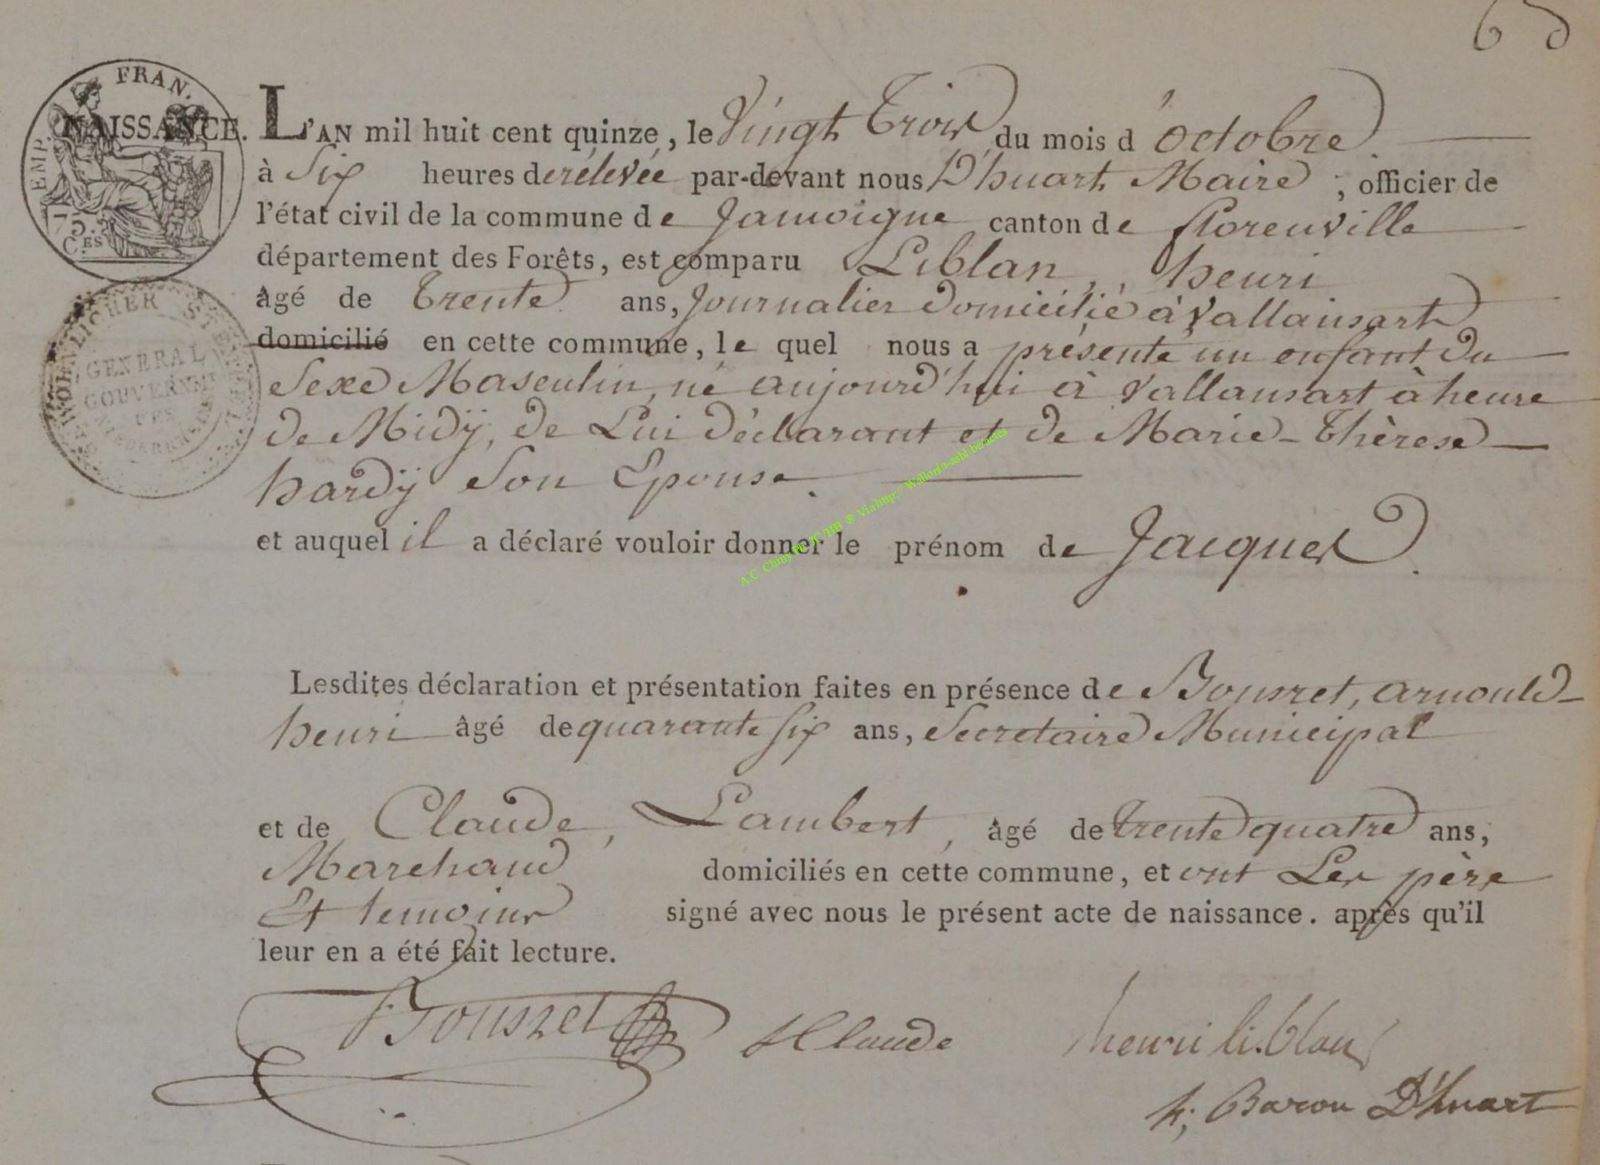 6 d
FRAN.
EMP.
75.
C.ES
NAISSANCE.
WOENLICHER STEMPEL
GENERAL
GOUVERNMT
DES
NIEDERRHEIN
L'AN mil huit cent quinze, le Vingt Trois du mois d'octobre
à Six heures de rélevée par-devant nous D'huart Maire ; officier de
l'état civil de la commune de Jamoigne canton de florenville
département des Forêts, est comparu Liblan, henri
âgé de Trente ans, Journalier domicilié à Vallansart
domicilié en cette commune, le quel nous a présenté un enfant du
Sexe Masculin, né aujourd'hui à Vallansart à heure
de Midÿ, de Lui déclarant et de Marie-Thèrese
hardÿ Son Epouse.
et auquel il a déclaré vouloir donner le prénom de Jacques.
Lesdites déclaration et présentation faites en présence de Bousret, arnould-
henri âgé de quarante six ans, Secretaire Municipal
et de Claude, Lambert, âgé de trente quatre ans,
Marchand domiciliés en cette commune, et ont Les père
Et temoins signé avec nous le présent acte de naissance. après qu'il
leur en a été fait lecture.
Bousret
LClaude
henri liblan
h; Baron D'huart